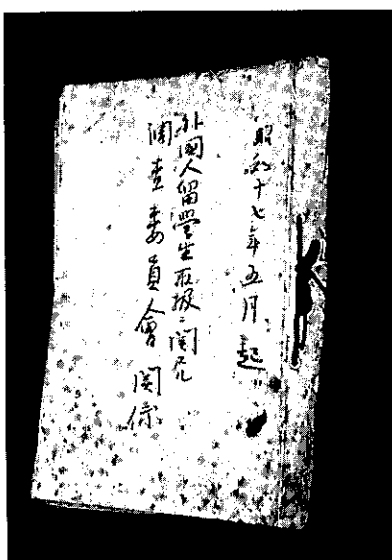 昭和十七年五月起
外国人留學生取扱ニ関スル
調査委員會関係